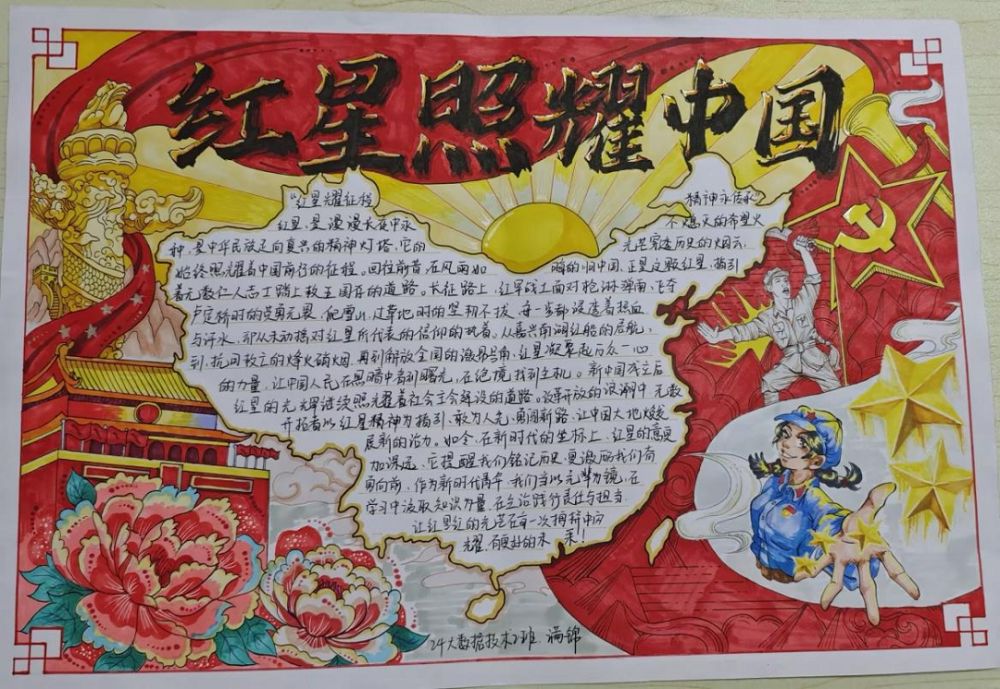 红星照耀中国
"红星耀征程
精神永传承"
红星,是漫漫长夜中永
不熄灭的希望火
种,是中华民族走向复兴的精神灯塔,它的
光芒穿透历史的烟云,
始终照耀着中国前行的征程。回往前昔,在风雨如
晦的旧中国,正是这颗红星,指引
着无数仁人志士踏上救亡图存的道路。长征路上,红军战士面对枪淋弹雨,飞夺
卢定桥时的英勇无畏,爬雪山、过草地时的坚韧不拔,每一步都浸透着热血
与汗水,却从未动摇对红星所代表的信仰的执着。从嘉兴南湖红船的启航,
到抗日救亡的烽火硝烟,再到解放全国的激昂号角,红星凝聚起万众一心
的力量,让中国人民在黑暗中看到曙光,在绝境找到生机。新中国成立后
红星的光辉继续照耀着社会主义建设的道路。改革开放的浪潮中,无数
开拓者以红星精神为指引、敢为人先、勇闯新路,让中国大地焕发
展新的活力。如今,在新时代的坐标上,红星的意更
加深远,它提醒我们铭记历史,更激励我们奋
勇向前,作为新时代青年,我们当以先辈为镜,在
学习中汲取知识力量,在生活践行责任与担当
让红星的光芒在有一次
耀,有更好的未来!
24大数据技术2班 满锦